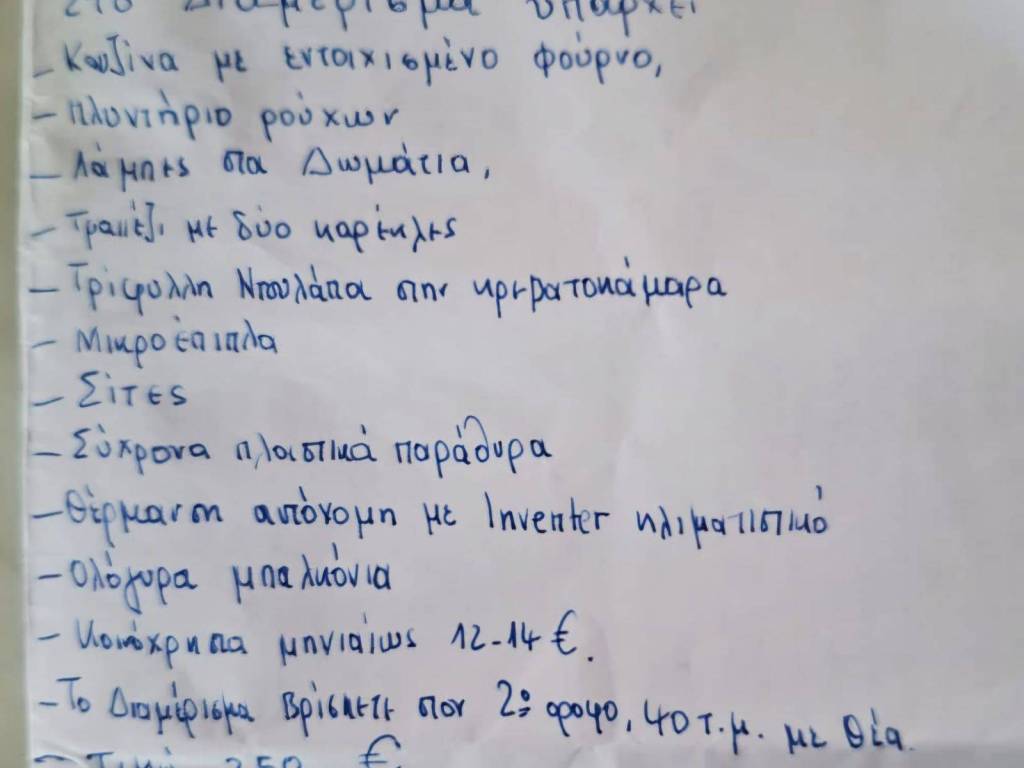 Στο Διαμέρισμα υπάρχει
- Κουζίνα με εντοιχισμένο φούρνο,
- Πλυντήριο ρούχων
- Λάμπες στα Δωμάτια,
- Τραπέζι με δύο καρέκλες
- Τρίφυλλη Ντουλάπα στην κρεβατοκάμαρα
- Μικροέπιπλα
- Σίτες
- Σύχρονα πλαστικά παράθυρα
- Θέρμανση αυτόνομη με Inventer κλιματιστικό
- Ολόγυρα μπαλκόνια
- Κοινόχρηστα μηνιαίως 12-14 €.
- Το Διαμέρισμα βρίσκετε στον 2ο όροφο, 40 τ.μ. με θέα.
- Τιμή 250 €